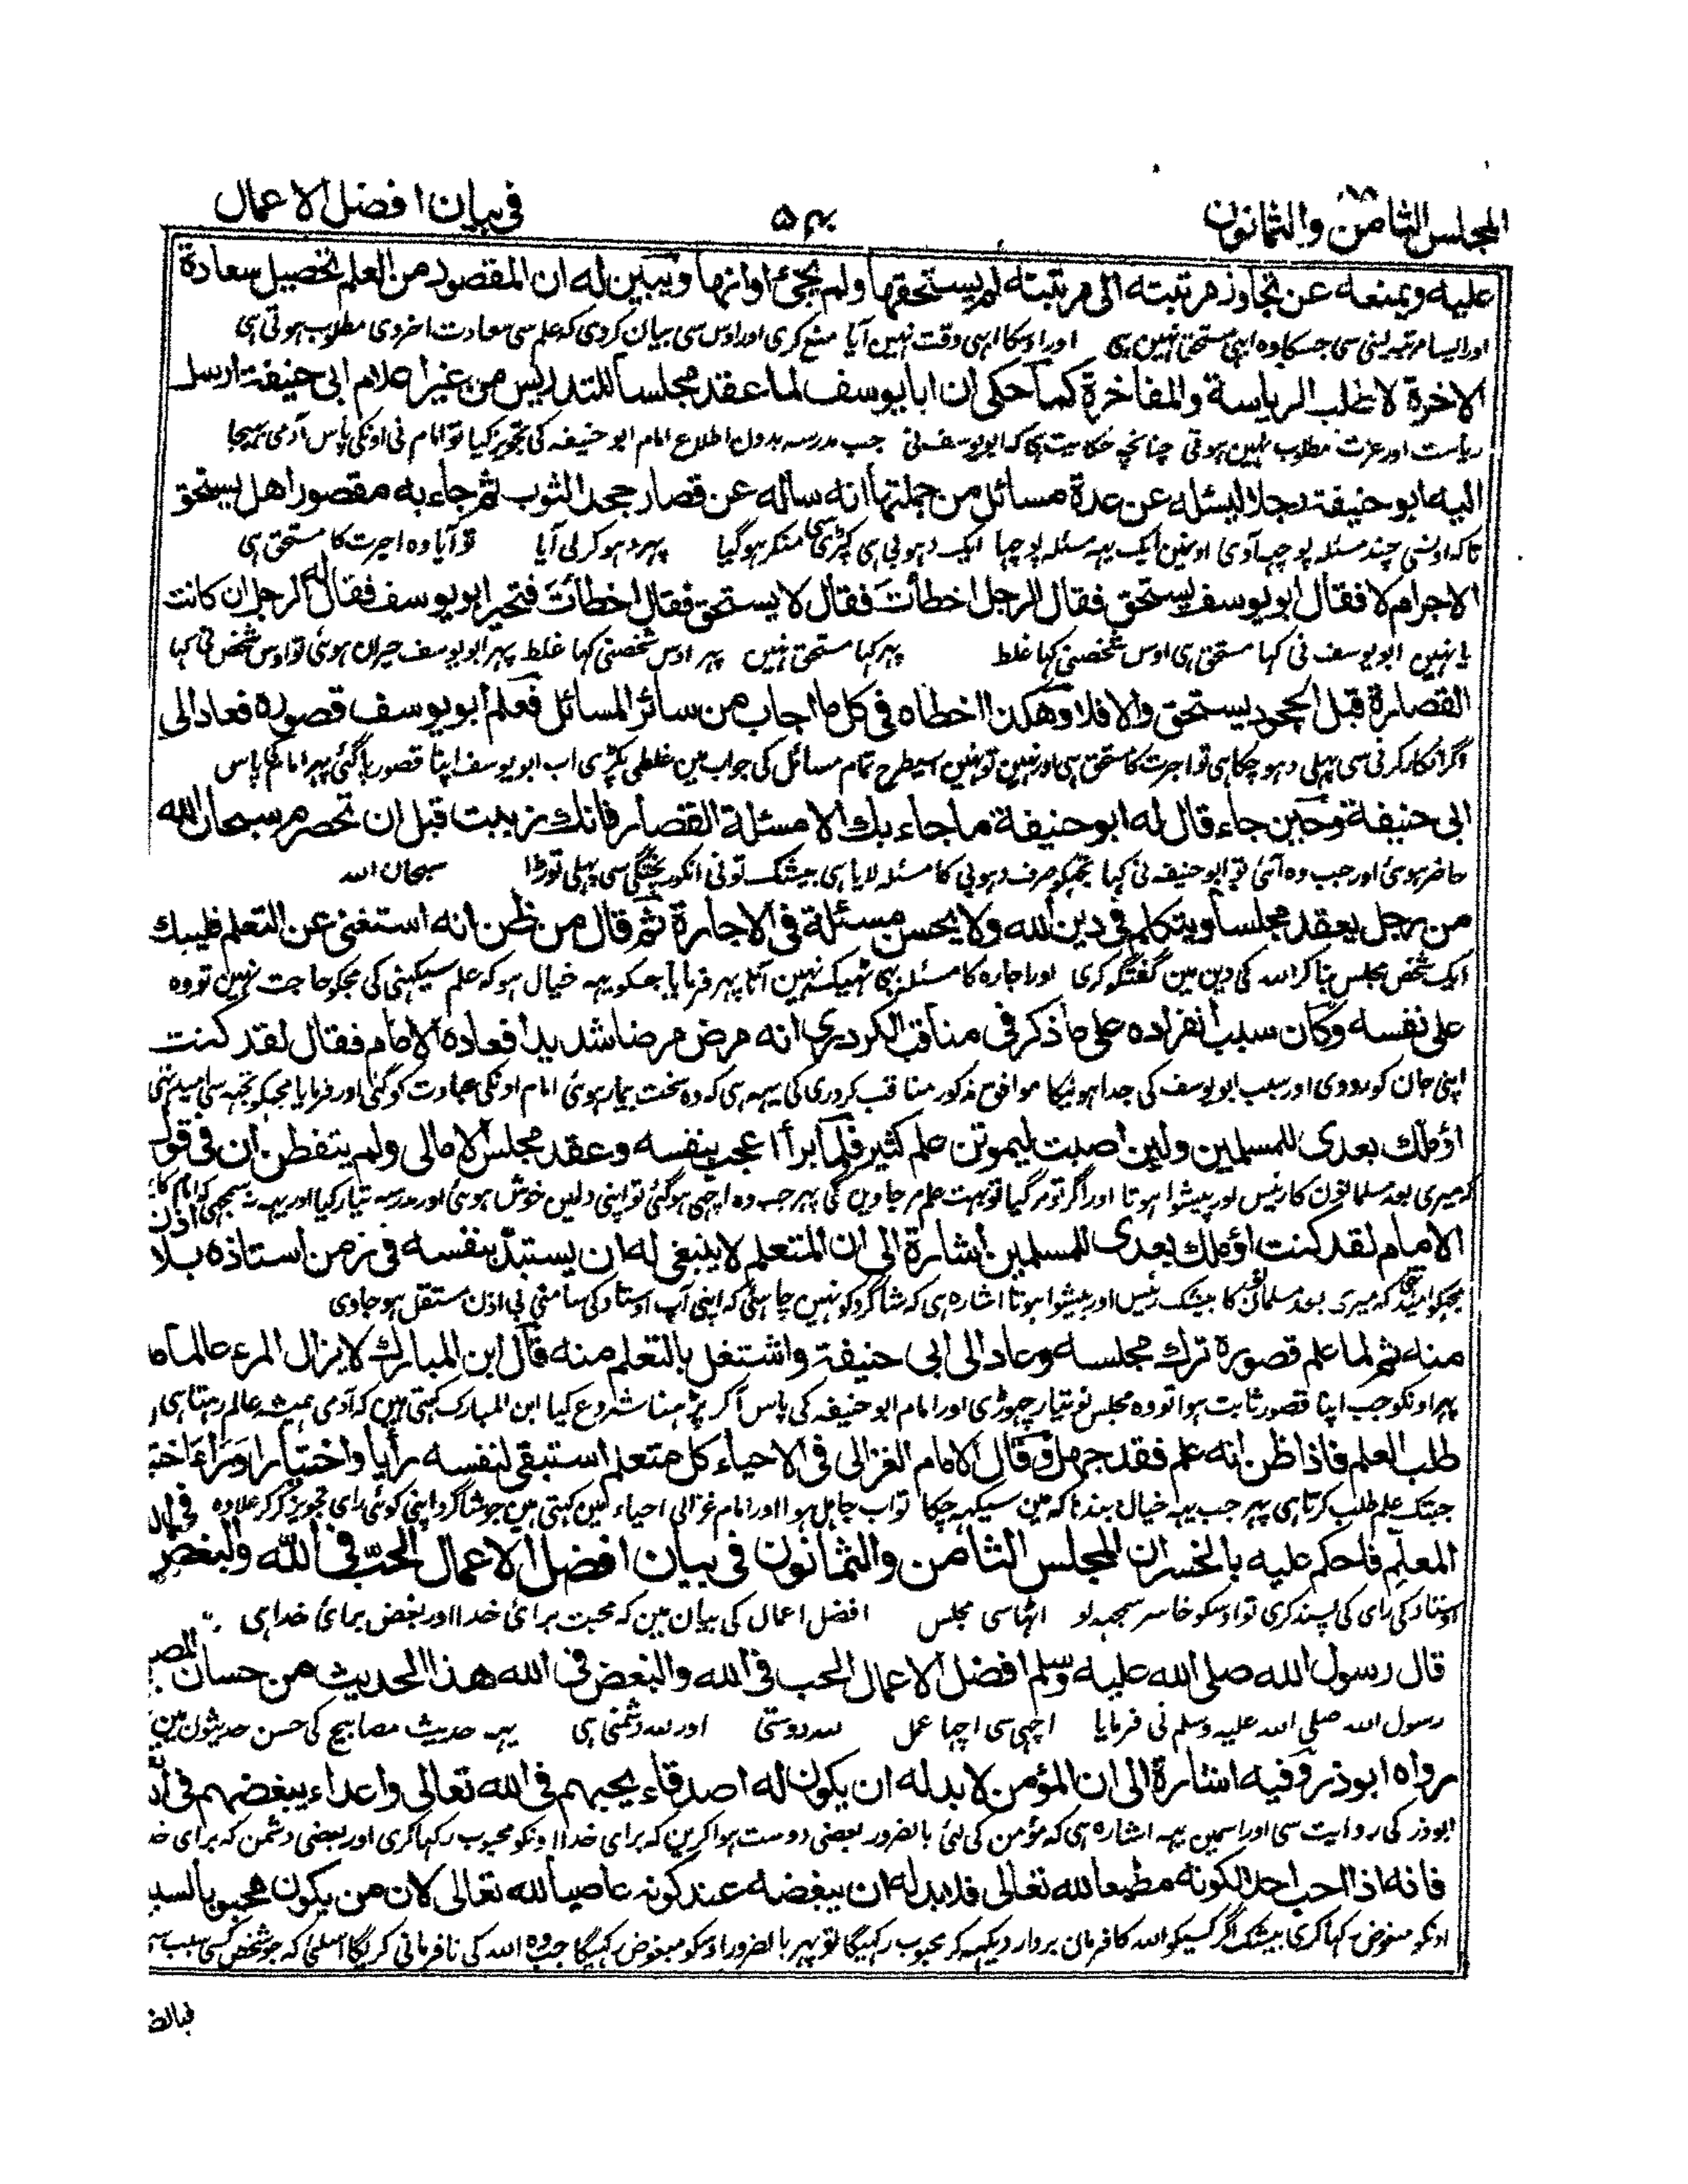 المجلس الثامن والثمانون
۵۴۰
فی بیان افضل الاعمال
علیه ویمنعه عن تجاوز مرتبته الی مرتبته لم یستحقها ولم یجئ اوانها ویبین له ان المقصود من العلم تحصیل سعادة
اور ایسا مرتبہ لینی سی جسکا وہ ابہی مستحق نہین ہی اور اوسکا ابہی وقت نہین آیا منع کری اور اوس سی بیان کردی کہ علم سی سعادت اخروی مطلوب ہوتی ہی
الاخرة لا طلب الریاسة والمفاخرة کما حکی ان ابا یوسف لما عقد مجلسا للتدریس من غیر اعلام ابی حنیفة ارسل
ریاست اور عزت مطلوب نہین ہوتی چنانچہ حکایت ہی کہ ابو یوسف نی جب مدرسہ بدون اطلاع امام ابو حنیفہ کی تجویز کیا تو امام نی اونکی پاس آدمی بہیجا
الیه ابو حنیفة رجلا لیسئله عن عدة مسائل من جملتها انه ساله عن قصار جحد الثوب ثم جاء به مقصورا هل یستحق
تاکہ اونسی چند مسئلہ پوچہہ آوی اونمین ایک یہہ مسئلہ پوچہا ایک دہوبی ہی کپڑی سی منکر ہوگیا پہر دہو کر لی آیا تو آیا وہ اجرت کا مستحق ہی
الاجرام لا فقال ابو یوسف یستحق فقال الرجل اخطأت فقال لا یستحق فقال اخطأت فتحیر ابو یوسف فقال له الرجل ان کانت
یا نہین ابو یوسف نی کہا مستحق ہی اوس شخص نی کہا غلط پہر کہا مستحق نہین پہر اوس شخص نی کہا غلط پہر ابو یوسف حیران ہوئی تو اوس شخص نی کہا
القصارة قبل الجحود یستحق والا فلا وهکذا اخطاه فی کل ما اجاب من سائر المسائل فعلم ابو یوسف قصوره فعاد الی
اگر انکار کرنی سی پہلی دہو چکا ہی تو اجرت کا مستحق ہی اور نہین تو نہین اسیطرح تمام مسائل کی جواب مین غلطی پکڑی اب ابو یوسف اپنا قصور پا گئی پہر امام کی پاس
ابی حنیفة وحین جاء قال له ابو حنیفة ما جاء بک الا مسئلة القصار فانک زببت قبل ان تحصرم سبحان الله
حاضر ہوئی اور جب وہ آئی تو ابو حنیفہ نی کہا تجہکو صرف دہوبی کا مسئلہ لایا ہی بیشک تونی انگور پختگی سی پہلی توڑا سبحان اللہ
من رجل یعقد مجلسا ویتکلم فی دین الله ولا یحسن مسئلة فی الاجارة ثم قال من ظن انه استغنی عن التعلم فلیبک
ایک شخص مجلس بنا کر اللہ کی دین مین گفتگو کری اور اجارہ کا مسئلہ بہی ٹہیک نہین آتا پہر فرمایا جسکو یہہ خیال ہو کہ علم سیکہنی کی مجکو حاجت نہین تو وہ
علی نفسه وکان سبب انفراده علی ما ذکر فی مناقب الکردری انه مرض مرضا شدیدا فعاده الامام فقال لقد کنت
اپنی جان کو رووی اور سبب ابو یوسف کی جدا ہونیکا موافق مذکور مناقب کردری کی یہہ ہی کہ وہ سخت بیمار ہوئی امام اونکی عیادت کو گئی اور فرمایا مجکو تجہہ سی امید تہی
اؤملک بعدی للمسلمین ولئن اصبت لیموتن علم کثیر فلما برأ اعجب بنفسه وعقد مجلس الامالی ولم یتفطن ان فی قول
کہ میری بعد مسلمانون کا رئیس اور پیشوا ہوتا اور اگر تو مر گیا تو بہت علم مر جاوین گی پہر جب وہ اچہی ہوگئی تو اپنی دلمین خوش ہوئی اور مدرسہ تیار کیا اور یہہ نہ سمجہی کہ امام کا
الامام لقد کنت اؤملک بعدی للمسلمین اشارة الی ان المتعلم لا ینبغی له ان یستبد بنفسه فی زمن استاذه بلا اذن
مجکو امید تہی کہ میری بعد مسلمانون کا بیشک رئیس اور پیشوا ہوتا اشارہ ہی کہ شاگرد کو نہین چاہئی کہ اپنی آپ اوستاد کی سامنی بی اذن مستقل ہو جاوی
منه ثم لما علم قصوره ترک مجلسه وعاد الی ابی حنیفة واشتغل بالتعلم منه قال ابن المبارک لا یزال المرء عالما ما
پہر اونکو جب اپنا قصور ثابت ہوا تو وہ مجلس نو تیار چہوڑی اور امام ابو حنیفہ کی پاس آکر پڑہنا شروع کیا ابن المبارک کہتی ہین کہ آدمی ہمیشہ عالم رہتا ہی
طلب العلم فاذا ظن انه علم فقد جهل وقال الامام الغزالی فی الاحیاء کل متعلم استبقی لنفسه رأیا واختیارا وراء اختیار
جبتک علم طلب کرتا ہی پہر جب یہہ خیال بندہا کہ مین سیکہہ چکا تو اب جاہل ہوا اور امام غزالی احیاء مین کہتی ہین جو شاگرد اپنی کوئی رای تجویز کر کر علاوہ
المعلم فاحکم علیه بالخسران المجلس الثامن والثمانون فی بیان افضل الاعمال الحب فی الله والبغض فی الله
اوستاد کی رای کی پسند کری تو اوسکو خاسر سمجہہ لو اٹہاسی مجلس افضل اعمال کی بیان مین کہ محبت برائی خدا اور بغض برائی خدا ہی
قال رسول الله صلی الله علیه وسلم افضل الاعمال الحب فی الله والبغض فی الله هذا الحدیث من حسان المصابیح
رسول اللہ صلی اللہ علیہ وسلم نی فرمایا اچہی سی اچہا عمل للہ دوستی اور للہ دشمنی ہی یہہ حدیث مصابیح کی حسن حدیثون مین
رواه ابوذر وفیه اشارة الی ان المؤمن لا بد له ان یکون له اصدقاء یحبهم فی الله تعالی واعداء یبغضهم فی
ابوذر کی روایت سی اور اسمین یہہ اشارہ ہی کہ مؤمن کی لئی بالضرور بعضی دوست ہوا کرین کہ برای خدا اونکو محبوب رکہا کری اور بعضی دشمن کہ برای
فانه اذا احب احدا لکونه مطیعا لله تعالی فلا بد له ان یبغضه عند کونه عاصیا لله تعالی لان من یکون محبوبا
اونکو مبغوض رکہا کری بیشک اگر کسیکو اللہ کا فرمان بردار دیکہہ کر محبوب رکہیگا تو پہر بالضرور اوسکو مبغوض رکہیگا جب وہ اللہ کی نافرمانی کریگا اسلئی کہ جو شخص کسی سبب سی